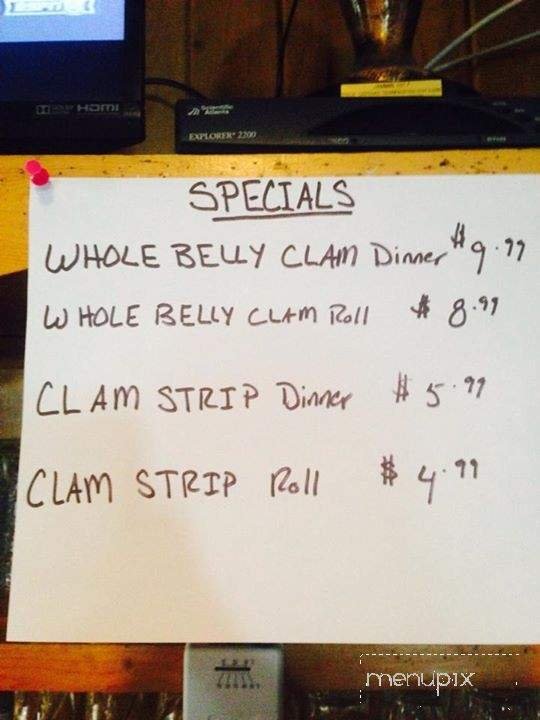 DOLBY HDMI
Scientific Atlanta
EXPLORER® 2200
SPECIALS
WHOLE BELLY CLAM Dinner $9.99
WHOLE BELLY CLAM Roll $8.99
CLAM STRIP Dinner $5.99
CLAM STRIP Roll $4.99
menupix